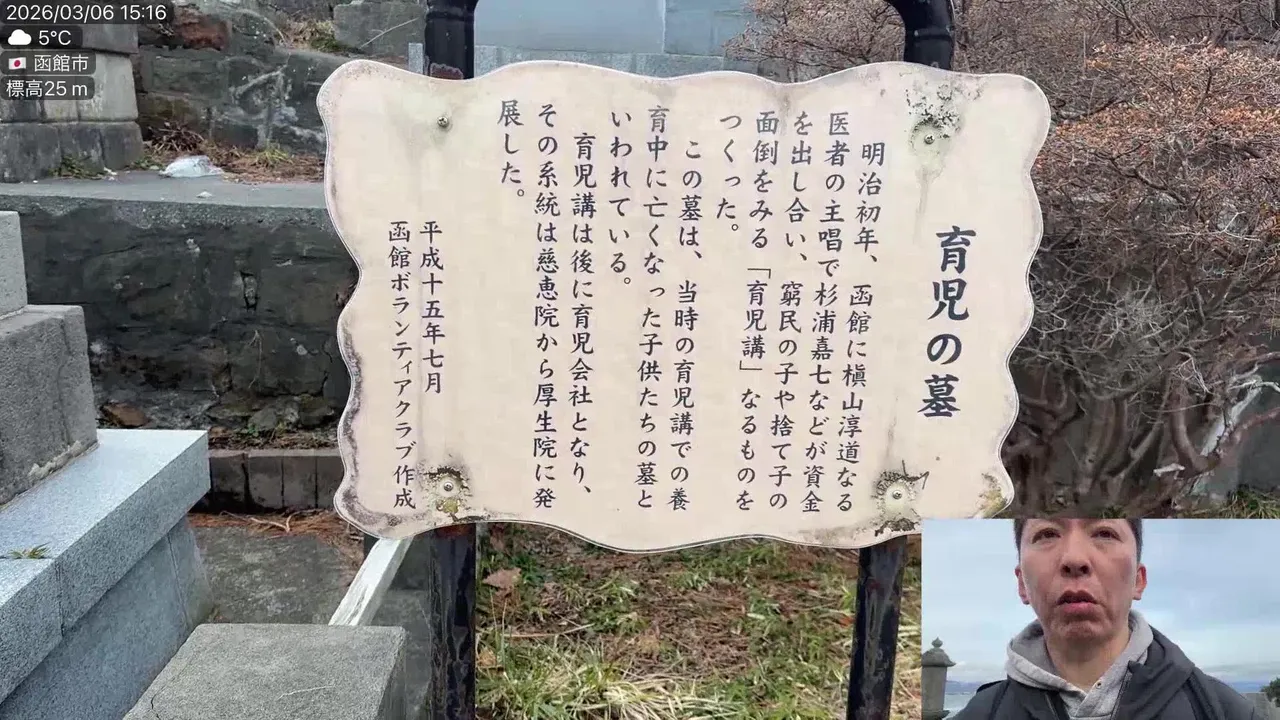 2026/03/06 15:16
5℃
函館市
標高25 m
育児の墓
明治初年、函館に槇山淳道なる
医者の主唱で杉浦嘉七などが資金
を出し合い、窮民の子や捨て子の
面倒をみる「育児講」なるものを
つくった。
この墓は、当時の育児講での養
育中に亡くなった子供たちの墓と
いわれている。
育児講は後に育児会社となり、
その系統は慈恵院から厚生院に発
展した。
平成十五年七月
函館ボランティアクラブ作成